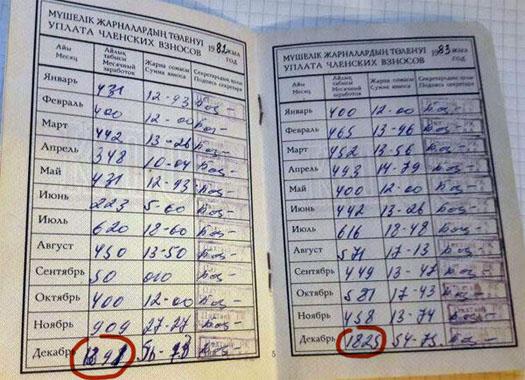 МҮШЕЛІК ЖАРНАЛАРДЫҢ ТӨЛЕНУІ
УПЛАТА ЧЛЕНСКИХ ВЗНОСОВ
1982 ЖЫЛ
ГОД
Айы
Месяц
Айлық табысы
Месячный заработок
Жарна сомасы
Сумма взноса
Секретардың қолы
Подпись секретаря
Январь 431 12-93
Февраль 400 12-00
Март 442 13-26
Апрель 348
Май 431 12-93
Июнь 223 5-60
Июль 620 18-60
Август 450 13-50
Сентябрь 50
Октябрь 400 12-00
Ноябрь 909 27-27
Декабрь
5
МҮШЕЛІК ЖАРНАЛАРДЫҢ ТӨЛЕНУІ
УПЛАТА ЧЛЕНСКИХ ВЗНОСОВ
1983 ЖЫЛ
ГОД
Айы
Месяц
Айлық табысы
Месячный заработок
Жарна сомасы
Сумма взноса
Секретардың қолы
Подпись секретаря
Январь 400 12-00
Февраль 465 13-96
Март 452 13-56
Апрель 493 14-79
Май 400 12-00
Июнь 442 13-26
Июль 616 18-48
Август 571 17-13
Сентябрь 449 13-47
Октябрь 581 17-43
Ноябрь 458 13-74
Декабрь 1825 54-75